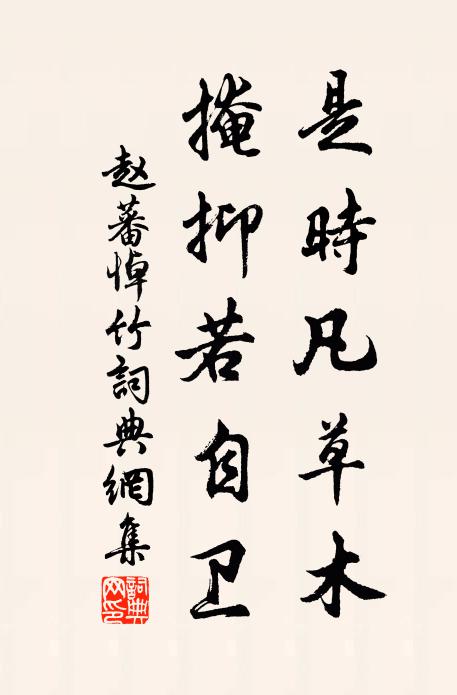 是時凡草木
掩抑若自卫
赵蕃悼竹詞典網集
詞典网印